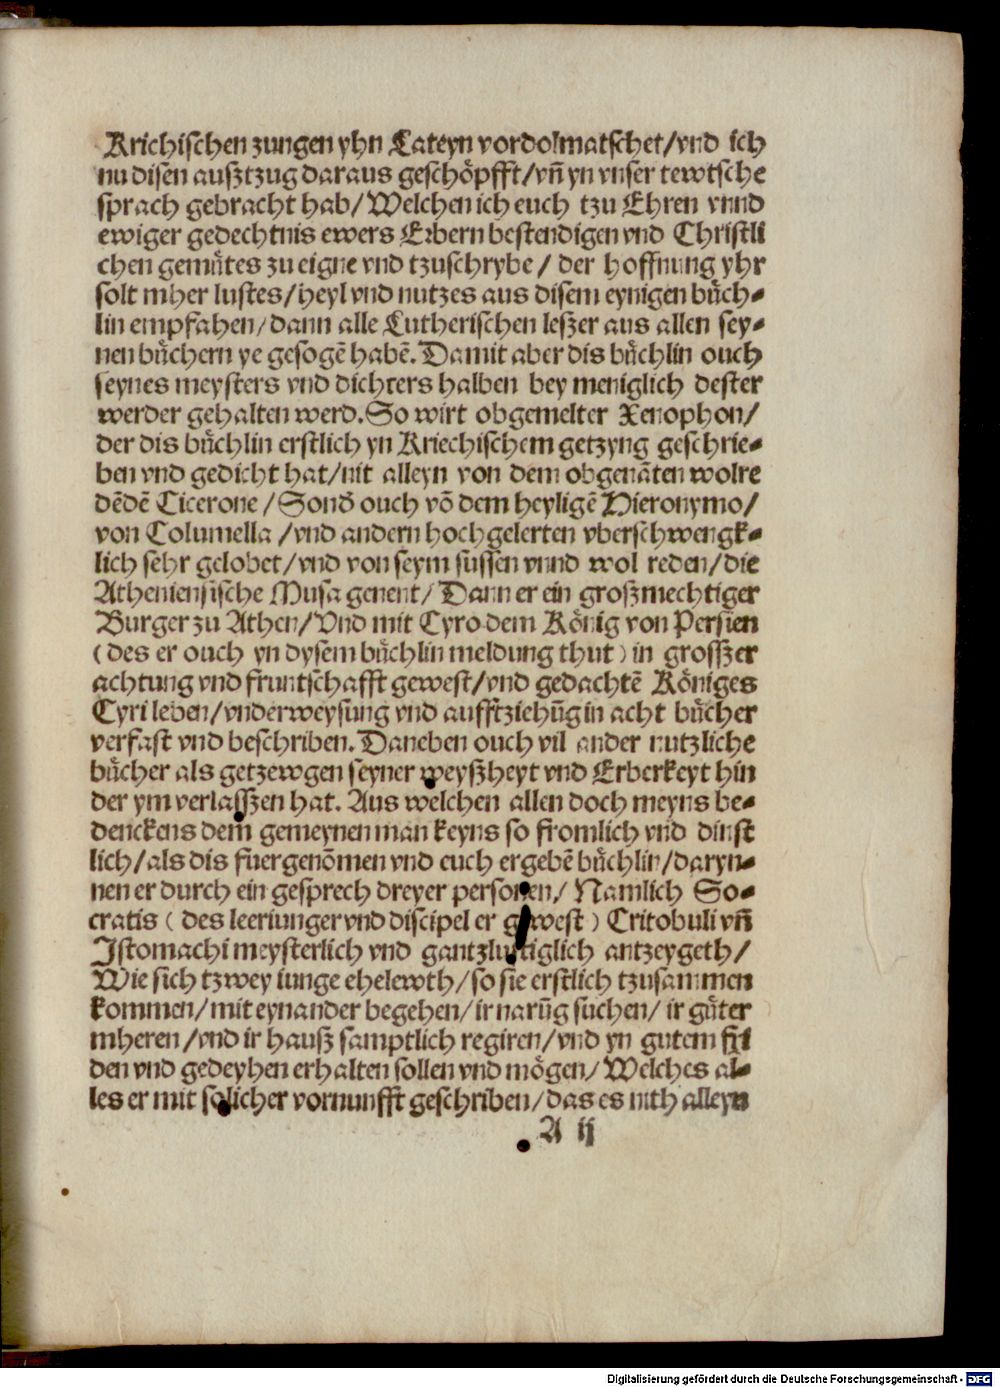 Krichischen zungen yhn Lateyn vordolmatschet/vnd ich
nu disen auſztzug daraus geschöpfft/vñ yn vnser tewtsche
sprach gebracht hab/Welchen ich euch tzu Ehren vnnd
ewiger gedechtnis ewers Erbern bestendigen vnd Christli
chen gemuͤtes zu eigne vnd tzuschrybe/ der hoffnung yhr
solt mher lustes/heyl vnd nutzes aus disem eynigen buͤch⸗
lin empfahen/dann alle Lutherischen leſzer aus allen sey⸗
nen buͤchern ye gesogē habē. Damit aber dis buͤchlin ouch
seynes meysters vnd dichters halben bey meniglich dester
werder gehalten werd. So wirt obgemelter Xenophon/
der dis buͤchlin erstlich yn Kriechischem getzyng geschrie⸗
ben vnd gedicht hat/nit alleyn von dem obgenāten wolre
dēdē Cicerone/Sonď ouch vō dem heyligē Hieronymo/
von Columella /vnd andern hochgelerten vberschwengk⸗
lich sehr gelobet/vnd von seym süssen vnnd wol reden/die
Atheniensische Musa genent/ Dann er ein groſzmechtiger
Burger zu Athen/Vnd mit Cyro dem König von Persien
(des er ouch yn dysem buͤchlin meldung thut) in grosſzer
achtung vnd fruntschafft gewest/vnd gedachtē Königes
Cyri leben/vnderweysung vnd aufftziehūg in acht buͤcher
verfast vnd beschriben. Daneben ouch vil ander nutzliche
buͤcher als getzewgen seyner weyſzheyt vnd Erberkeyt hin
der ym verlasſzen hat. Aus welchen allen doch meyns be⸗
denckens dem gemeynen man keyns so fromlich vnd dinst
lich/als dis fuergenōmen vnd euch ergebē buͤchlin/daryn⸗
nen er durch ein gesprech dreyer personen/ Namlich So⸗
cratis ( des leeriunger vnd discipel er gewest ) Critobuli vñ
Istomachi meysterlich vnd gantzlustiglich antzeygeth/
Wie sich tzwey iunge ehelewth/so sie erstlich tzusammen
kommen/mit eynander begehen/ir narūg suchen/ ir guͤter
mheren/vnd ir hauſz samptlich regiren/vnd yn gutem fri
den vnd gedeyhen erhalten sollen vnd mögen/Welches al⸗
les er mit solicher vornunfft geschriben/das es nith alleyn
A ij
Digitalisierung gefördert durch die Deutsche Forschungsgemeinschaft - DFG